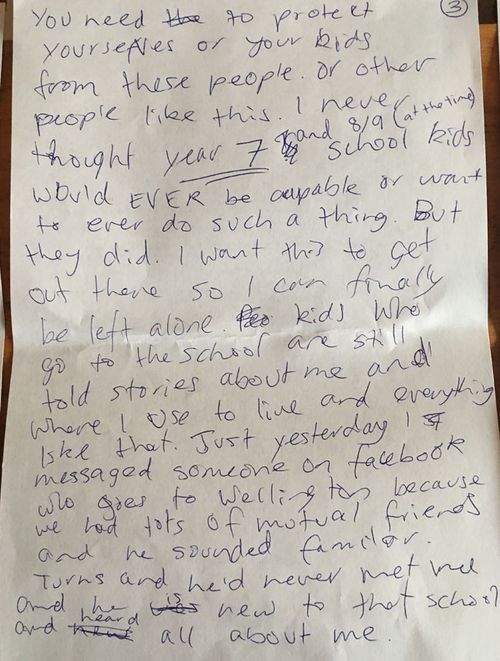 ③
You need the to protect
yourselves or your kids
from these people. or other
people like this. I never
thought year 7 and 8/9 (at the time) school kids
would EVER be capable or want
to ever do such a thing. But
they did. I want this to get
out there so I can finally
be left alone. kids who
go to the school are still
told stories about me and
where I use to live and everything
like that. Just yesterday I
messaged someone on facebook
who goes to wellington because
we had lots of mutual friends
and he sounded familar.
Turns and he'd never met me
and he is new to that school
and heard all about me.